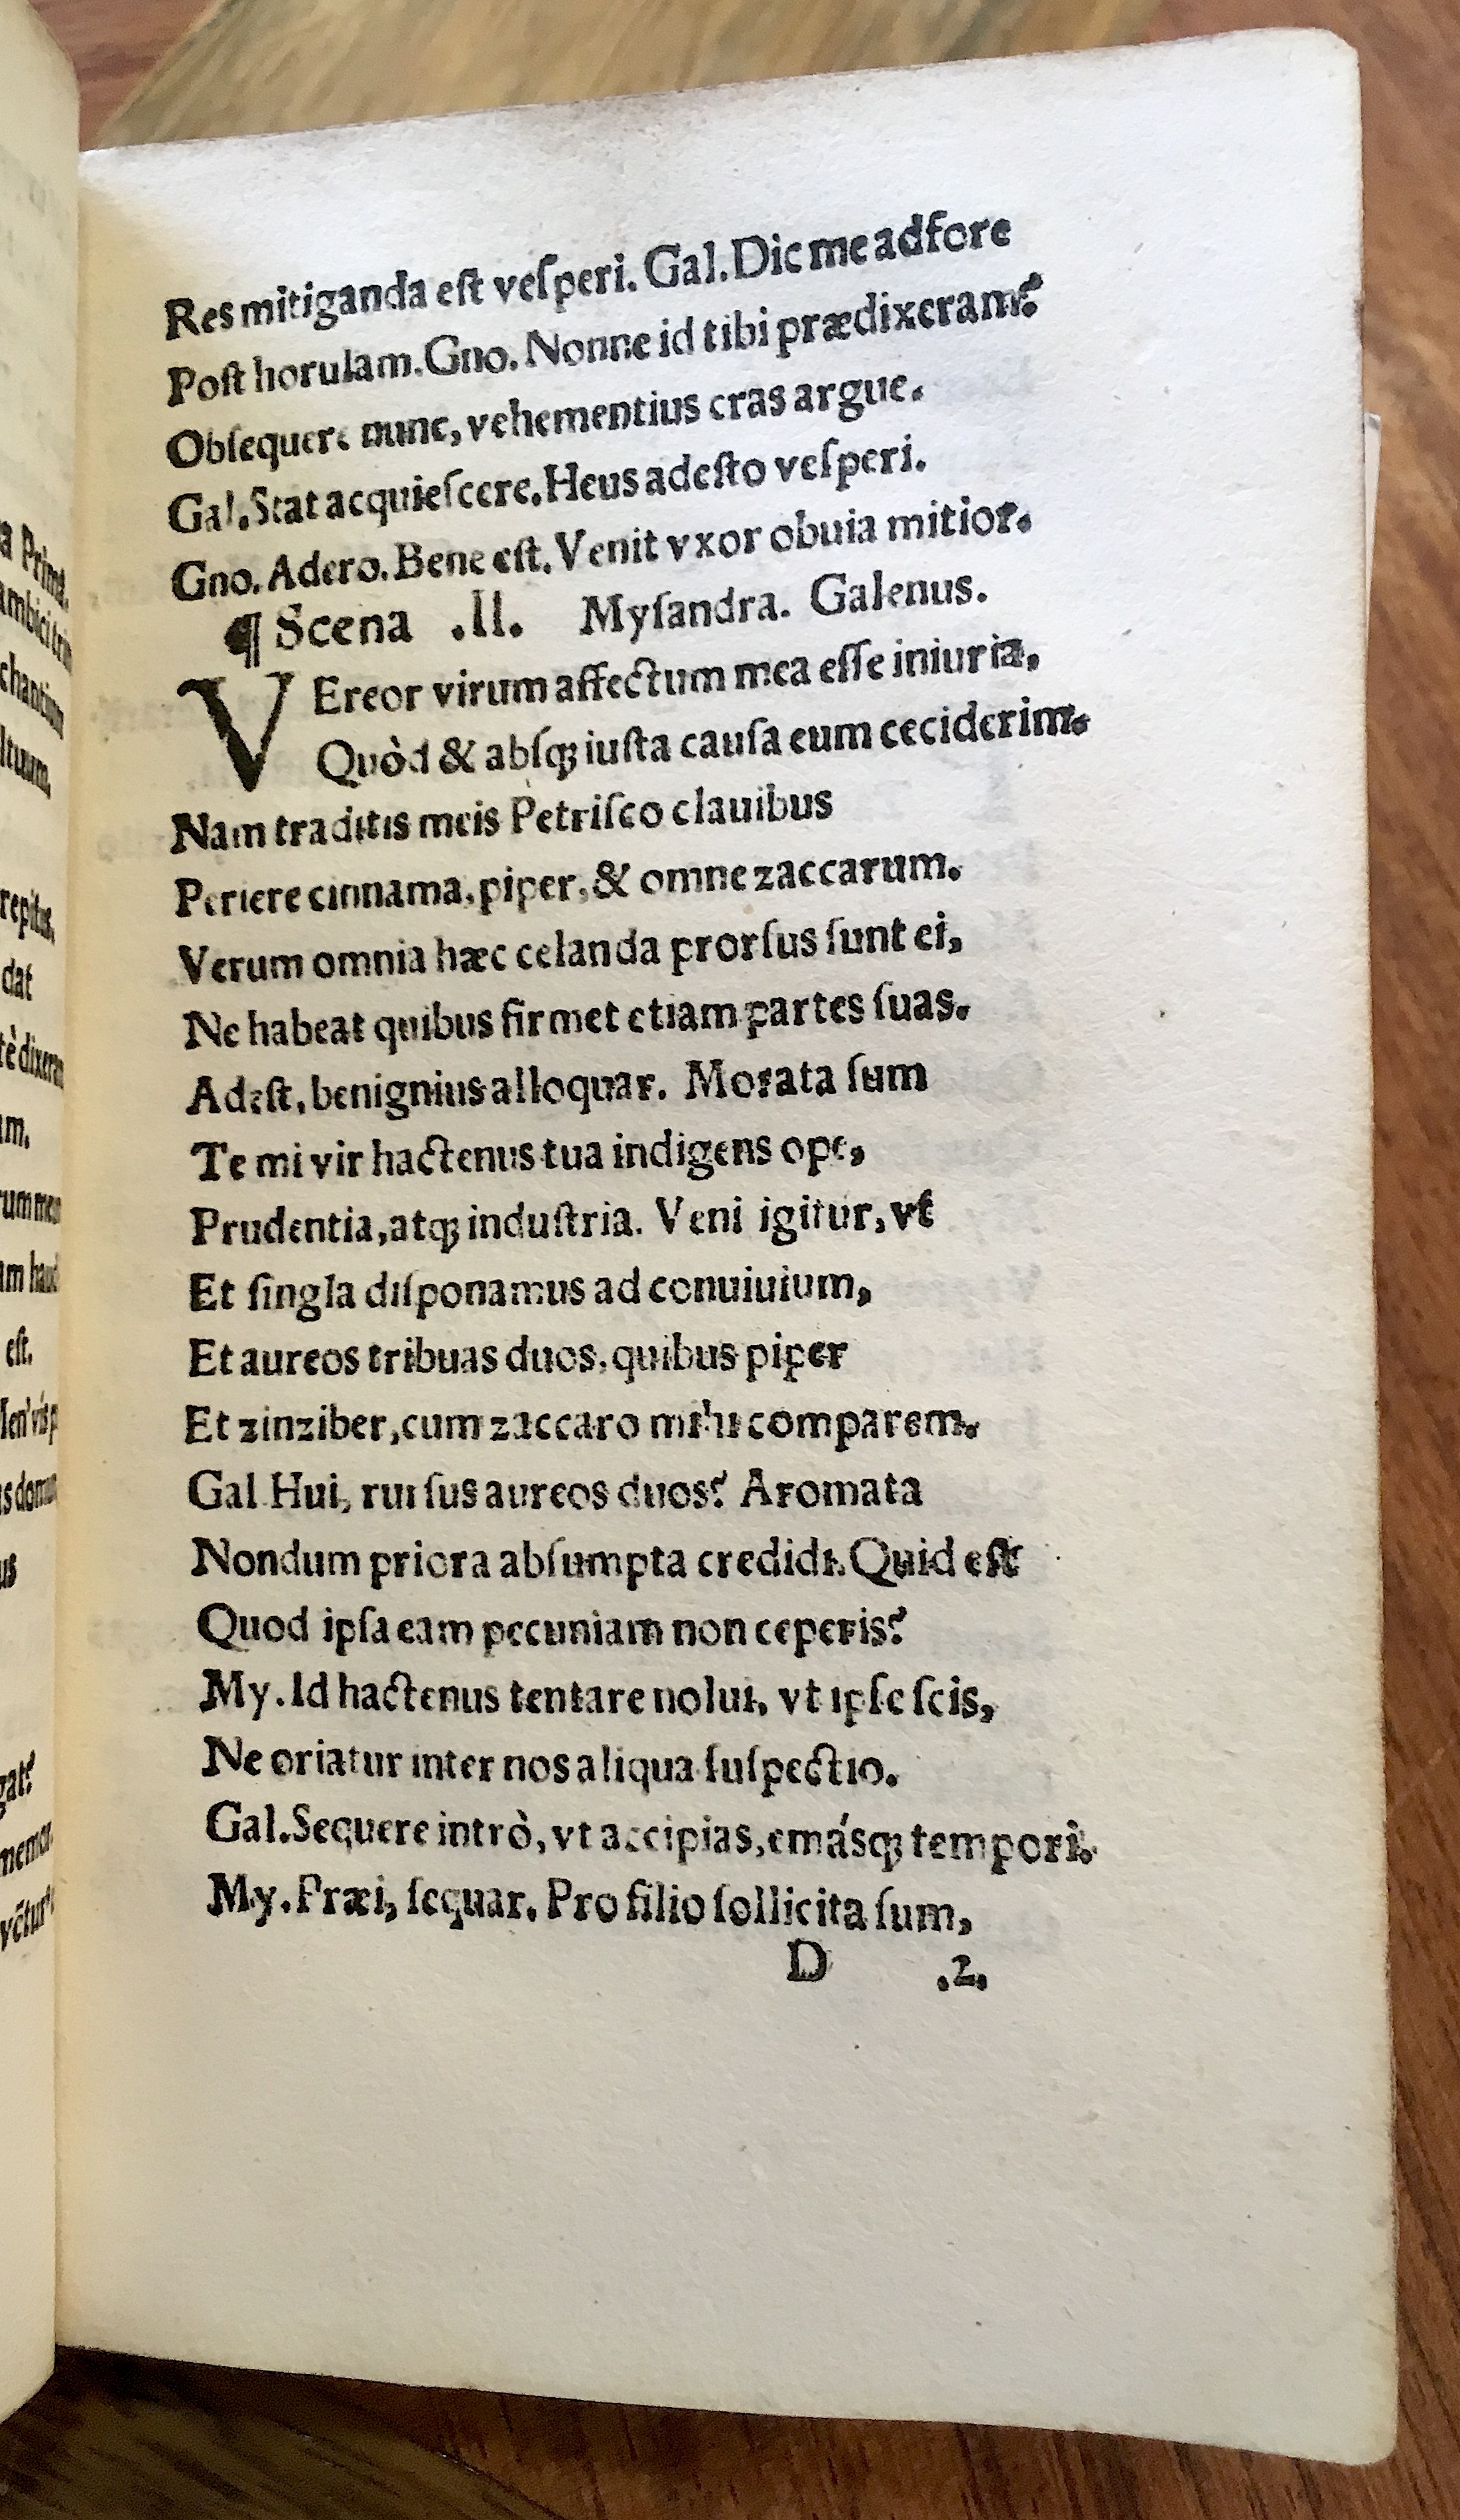 Res mitiganda eſt veſperi. Gal. Dic me adfore
Poſt horulam. Gno. Nonne id tibi prædixeram?
Obſequere nunc, vehementius cras argue.
Gal. Stat acquieſcere. Heus adeſto veſperi.
Gno. Adero. Bene eſt. Venit vxor obuia mitior.
¶ Scena .II. Myſandra. Galenus.
VEreor virum affectum mea eſſe iniuria,
Quòd & abſqꝫ iuſta cauſa eum ceciderim.
Nam traditis meis Petriſco clauibus
Periere cinnama, piper, & omne zaccarum.
Verum omnia hæc celanda prorſus ſunt ei,
Ne habeat quibus firmet etiam partes ſuas.
Adeſt, benignius alloquar. Morata ſum
Te mi vir hactenus tua indigens ope,
Prudentia, atqꝫ induſtria. Veni igitur, vt
Et ſingla diſponamus ad conuiuium,
Et aureos tribuas duos, quibus piper
Et zinziber, cum zaccaro mihi comparem.
Gal Hui, rurſus aureos duos? Aromata
Nondum priora abſumpta credidi. Quid eſt
Quod ipſa eam pecuniam non ceperis?
My. Id hactenus tentare nolui, vt ipſe ſcis,
Ne oriatur inter nos aliqua ſuſpectio.
Gal. Sequere intrò, vt accipias, emásqꝫ tempori.
My. Præi, ſequar. Pro filio ſollicita ſum,
D .2.